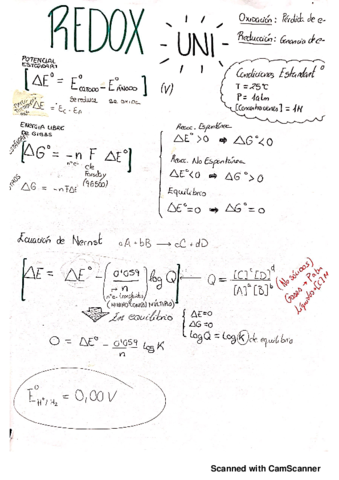 REDOX
-UNI-
Oxidación: Pérdida de e-
Reducción: Ganancia de e-
POTENCIAL
ESTÁNDAR
ΔE° = E°CÁTODO - E°ÁNODO (V)
Se reduce
ΔE = EC - EA
Condiciones Estandart °
T = 25°C
P = 1atm
[Concentraciones] = 1M
ENERGÍA LIBRE
DE GIBBS
ΔG° = -n F ΔE°
nº e-
cte
Faraday
(96500)
ΔG = -nFΔE
Reacc. Espontánea
ΔE° > 0 ⇒ ΔG° < 0
Reacc. No Espontánea
ΔE° < 0 ⇒ ΔG° > 0
Equilibrio
ΔE° = 0 ⇒ ΔG° = 0
Ecuación de Nernst aA + bB → cC + dD
ΔE = ΔE° - (0'059/n) log Q
Q = [C]^c [D]^d / [A]^a [B]^b
(No sólidos)
Gases → Patm
En equilibrio
ΔE = 0
ΔG = 0
log Q = log K de equilibrio
0 = ΔE° - 0'059/n log K
E°H+/H2 = 0,00 V
Scanned with CamScanner